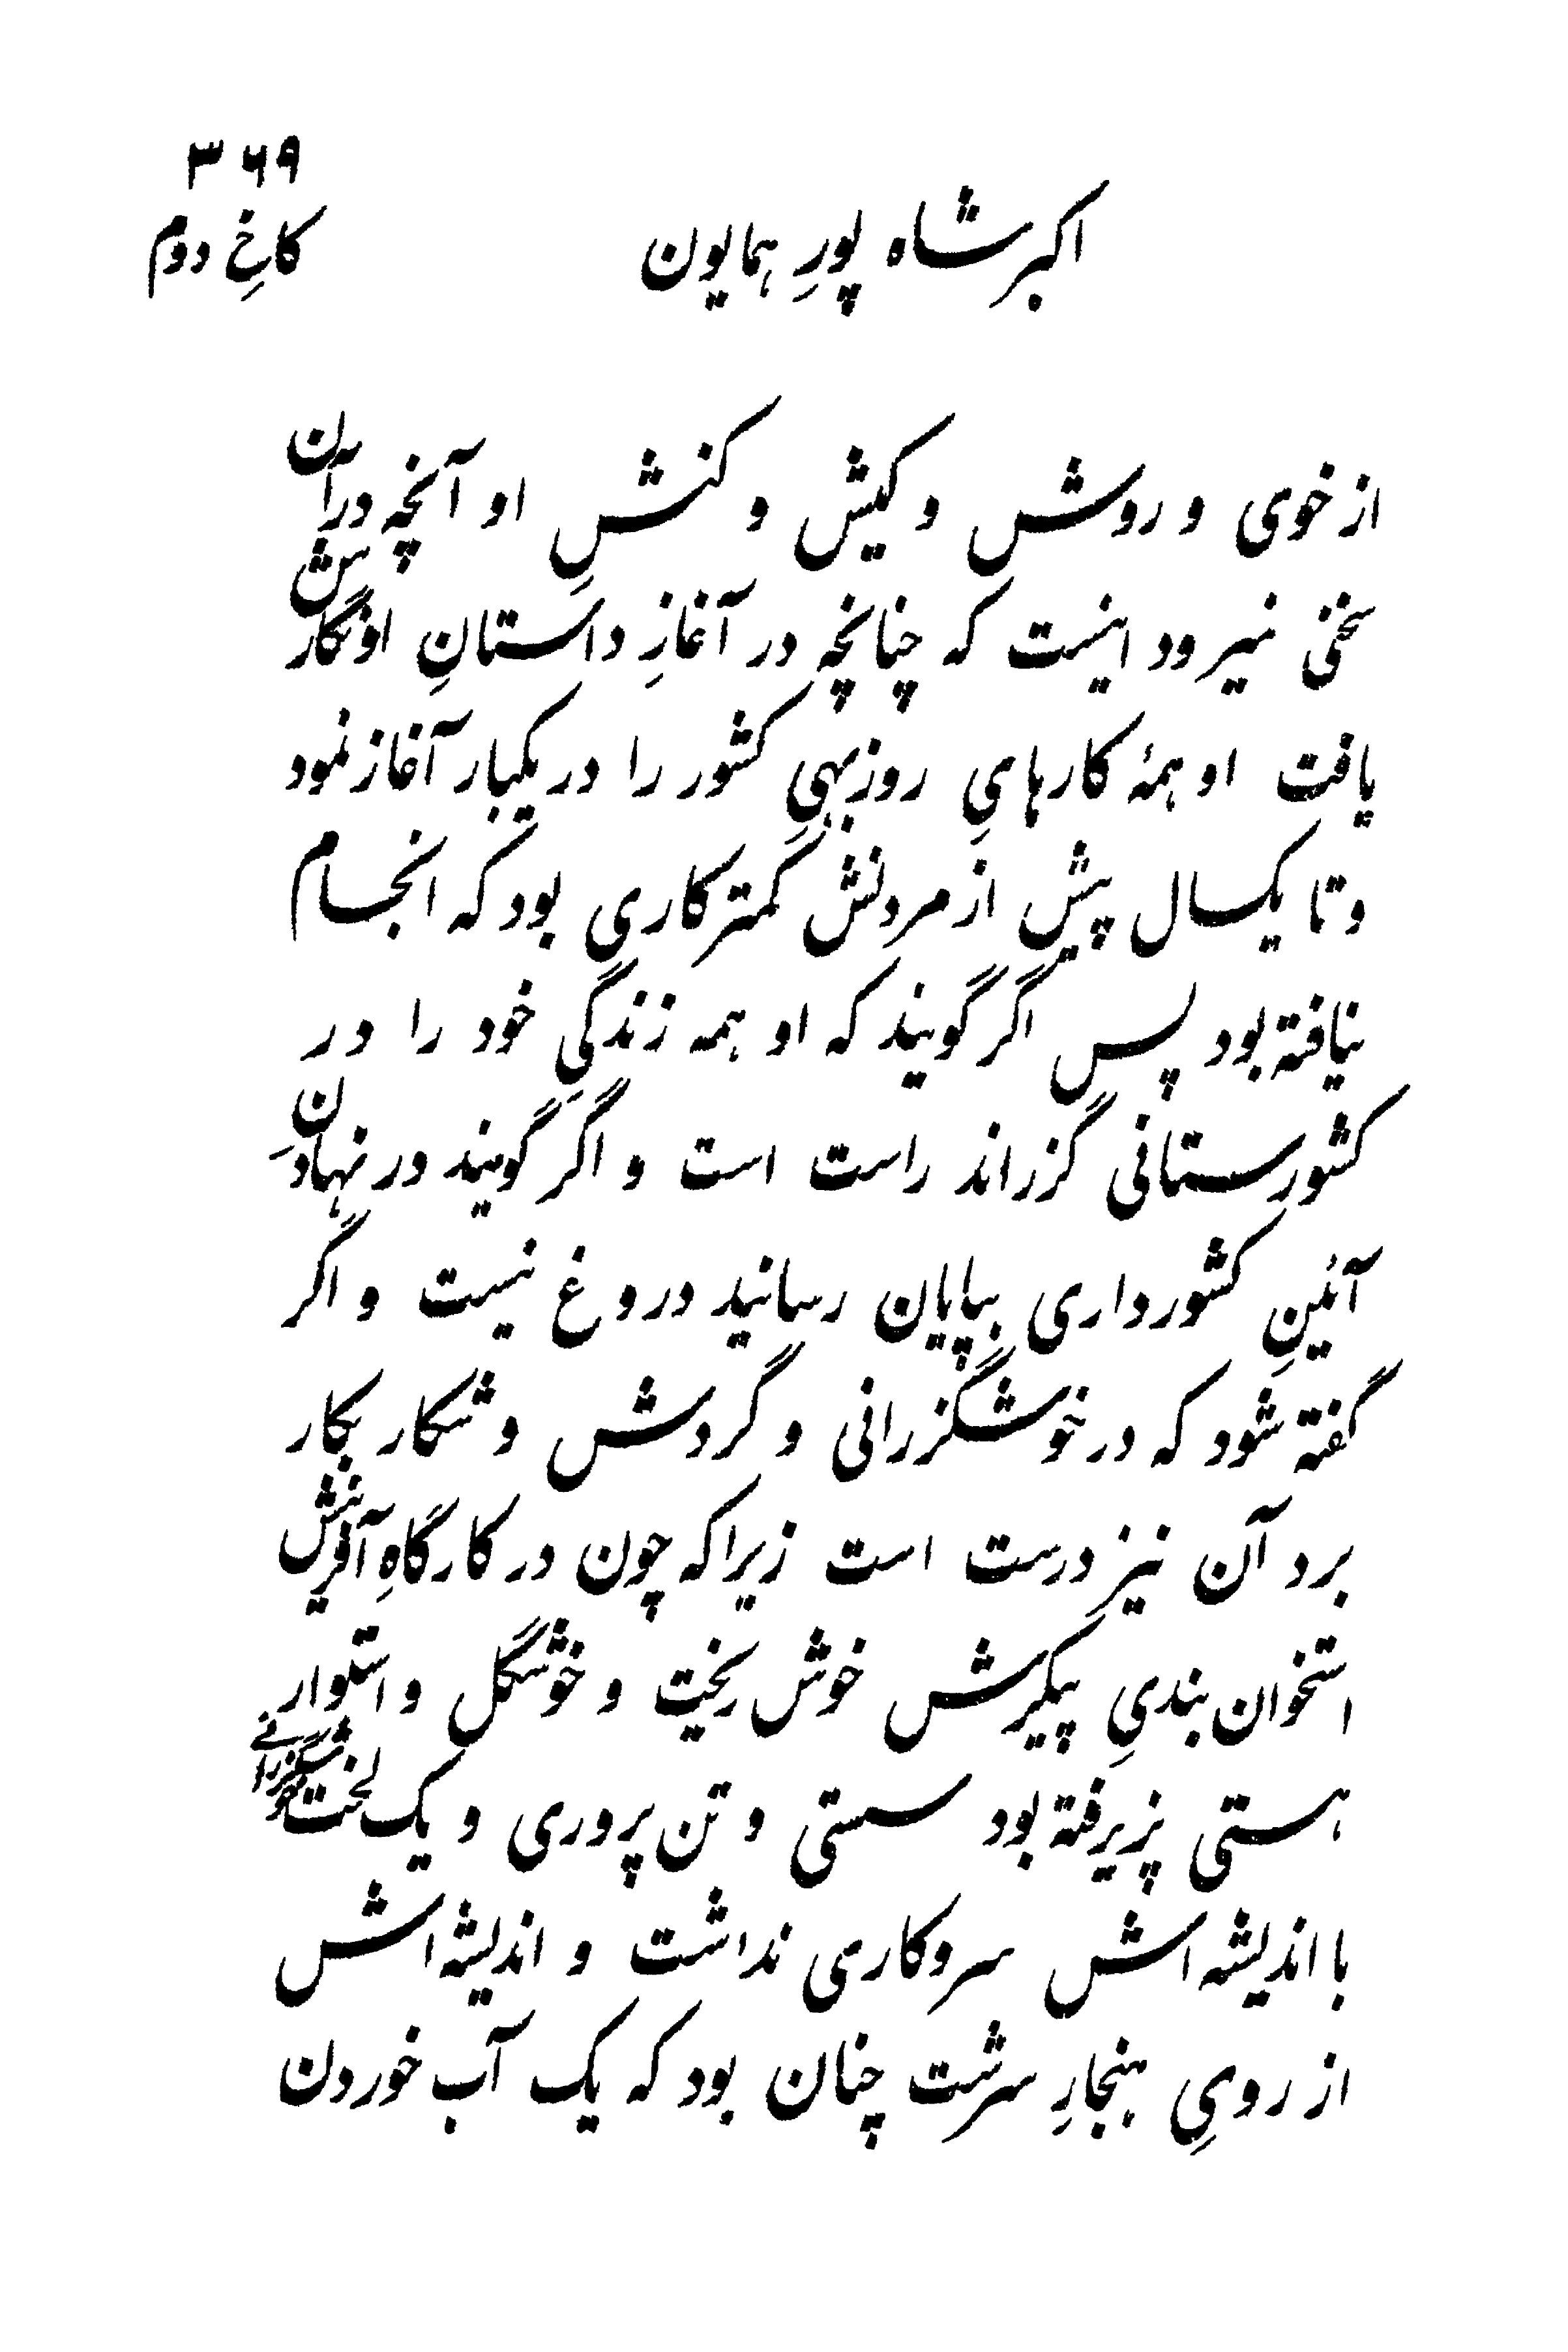 ۳۶۹
اکبرشاه پورِ همایون
کاخِ دوم
از خوی و روش و کیش و کنشِ او آنچه درآن
سخنی نمیرود اینست که چنانچه در آغازِ داستانِ او نگارش
یافت او همهٔ کارهایِ روزبهیِ کشور را در یکبار آغاز نمود
و تا یکسال پیش از مردنش کمتر کاری بود که انجام
نیافته بود پس اگر گویند که او همه زندگیِ خود را در
کشورستانی گزراند راست است و اگر گویند در نهادنِ
آئینِ کشورداری بپایان رسانید دروغ نیست و اگر
گفته شود که در خوشگزرانی و گردش و شکار بکار
برد آن نیز درست است زیرا که چون در کارگاهِ آفرینش
استخوان بندیِ پیکرش خوش ریخت و خوشگل و استوار
هستی پزیرفته بود سستی و تن پروری و یک لخت خوشگزرانی
با اندیشه اش سروکاری نداشت و اندیشه اش
از رویِ هنجارِ سرشت چنان بود که یک آب خوردن